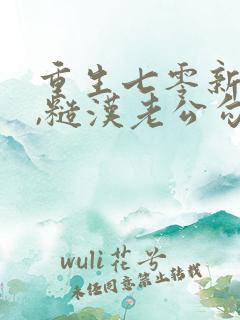 重生七零新
,糙漢老公勾
wuli花兮
未经同意禁止转载